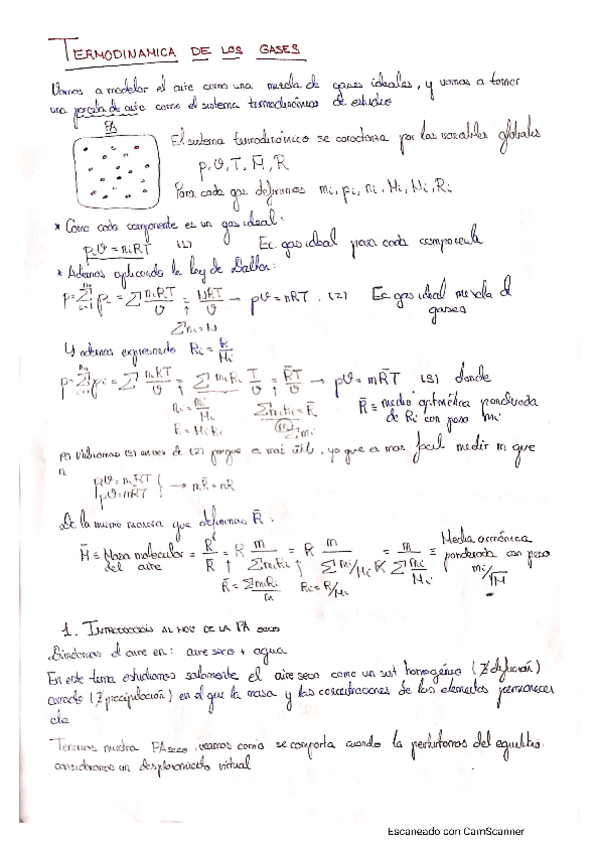 TERMODINAMICA DE LOS GASES
Vamos a modelar el aire como una mezcla de gases ideales, y vamos a tomar
una parcela de aire como el sistema termodinámico de estudio
PA
El sistema termodinámico se caracteriza por las variables globales
p, V, T, M̄, R
Para cada gas definimos mi, pi, ni, Mi, Ni, Ri
* Como cada componente es un gas ideal:
piV = niRT (1) Ec. gas ideal para cada componente
* Ademas aplicando la ley de Dalton:
p = Σ pi = Σ niRT/V = NRT/V → pV = nRT. (2) Ec gas ideal mezcla d
gases
Σni = N
Y ademas expresando Ri = R/Mi
p = Σ pi = Σ niRT/V = Σ miRi T/V = R̄T/V → pV = mR̄T (3) donde
ni = mi/Mi
R = MiRi
R̄ ≡ media aritmética ponderada
de Ri con peso mi
(3) en vez de (2) porque es mas útil, ya que es mas facil medir m que
n
pV = mR̄T
pV = nRT → mR̄ = nR
De la misma manera que definimos R̄:
M̄ ≡ Masa molecular del aire = R/R̄ = R m/ΣmiRi = R m/Σ mi R/Mi = m/Σ mi/Mi ≡ Media armónica ponderada con peso
R̄ = ΣmiRi/m Ri = R/Mi
1. INTRODUCCIÓN AL MOV DE LA PA SECO
Dividimos el aire en: aire seco + agua
En este tema estudiamos solamente el aire seco como un sist homogéneo (∄ difusión)
cerrado (∄ precipitación) en el que la masa y las concentraciones de los elementos permanecen
cte
Tenemos nuestra PA seco, veamos como se comporta cuando la perturbamos del equilibrio.
consideramos un desplazamiento virtual
Escaneado con CamScanner